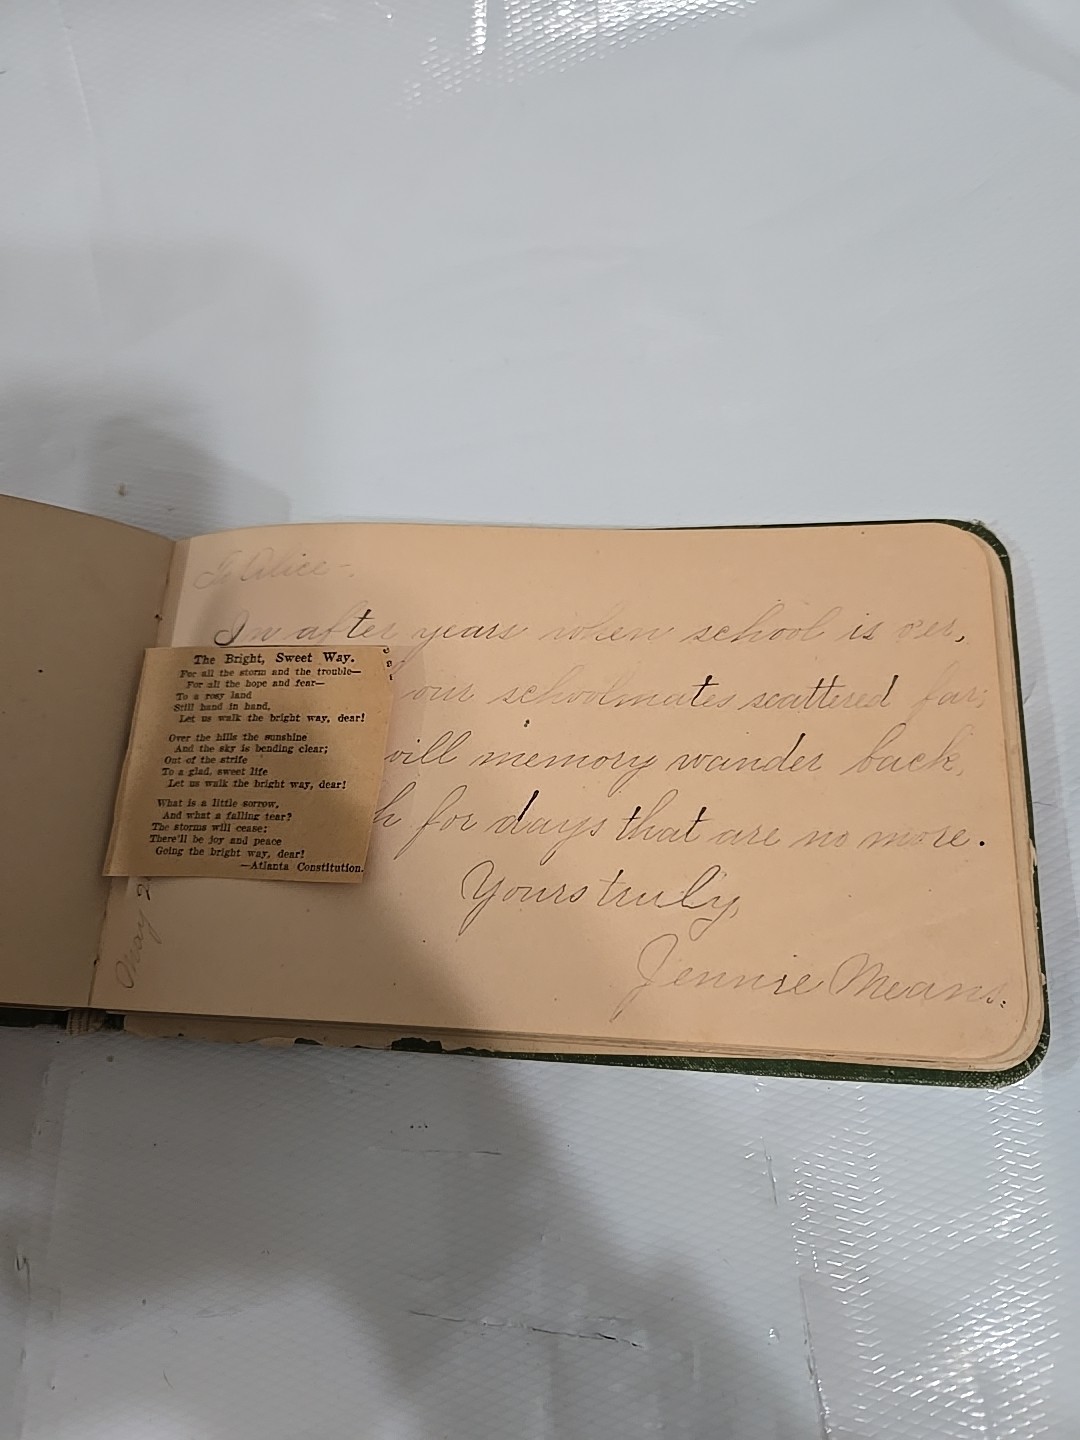 To Alice -.
In after years when school is o'er,
our schoolmates scattered far;
will memory wander back,
h for days that are no more.
Yours truly,
Jennie Means.
May 2
The Bright, Sweet Way.
For all the storm and the trouble—
For all the hope and fear—
To a rosy land
Still hand in hand,
Let us walk the bright way, dear!
Over the hills the sunshine
And the sky is bending clear;
Out of the strife
To a glad, sweet life
Let us walk the bright way, dear!
What is a little sorrow,
And what a falling tear?
The storms will cease;
There'll be joy and peace
Going the bright way, dear!
—Atlanta Constitution.